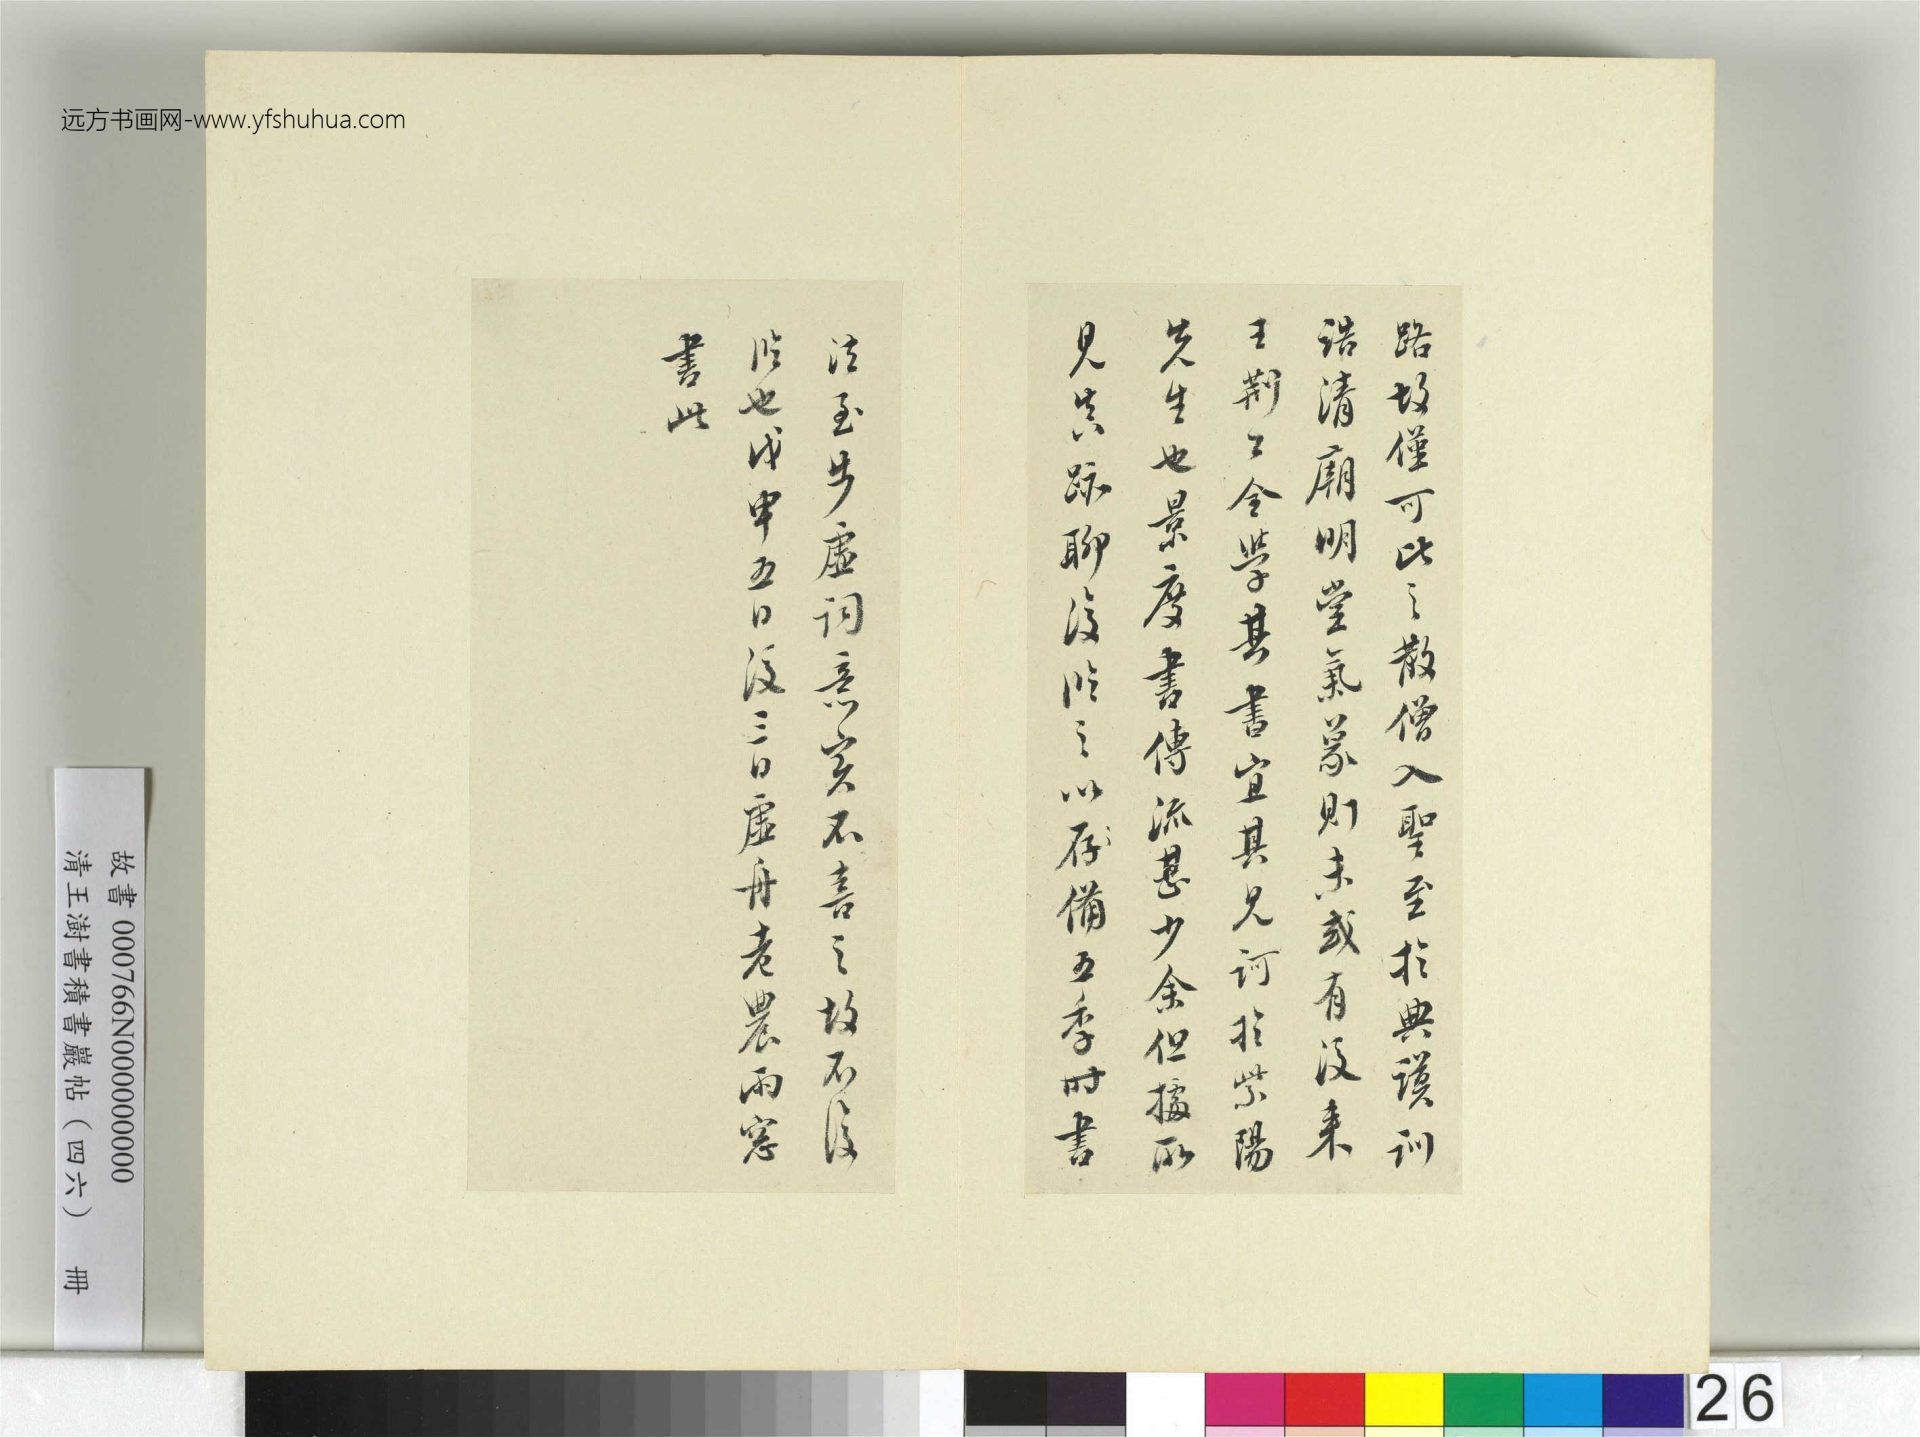 远方书画网-www.yfshuhua.com
路故僅可比之散僧入聖至於典謨訓
誥清廟明堂氣象則未或有後来
王荆公全學其書宜其見訶於紫陽
先生也景度書傳流甚少余但據所
見真跡聊復臨之以存備五季时書
法至步虛詞意實不喜之故不復
臨也戊申五日後三日虛舟老農雨窓
書此
故書 000766N000000000
清王澍書積書巖帖（四六） 冊
26